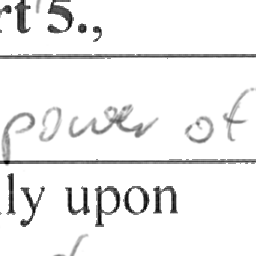 rt 5.,
power of
lly upon